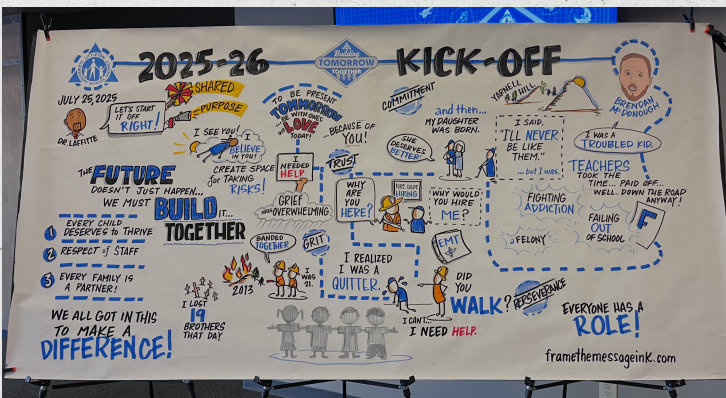 2025-26
Building
TOMORROW
TOGETHER
KICK-OFF
JULY 25, 2025
LET'S START
IT OFF
RIGHT!
DR. LAFFITTE
SHARED
PURPOSE
I SEE YOU!
I
BELIEVE
IN YOU!
CREATE SPACE
for TAKING
RISKS!
THE FUTURE
DOESN'T JUST HAPPEN...
WE MUST BUILD IT...
TOGETHER
1 EVERY CHILD
DESERVES to THRIVE
2 RESPECT of STAFF
3 EVERY FAMILY IS
A PARTNER!
WE ALL GOT IN THIS
TO MAKE A
DIFFERENCE!
TO BE PRESENT
TOMMORROW
BE WITH ONES
LOVE
TODAY!
...BECAUSE OF
YOU!
TRUST
I
NEEDED
HELP
GRIEF
OVERWHELMING
BANDED
TOGETHER
GRIT
2013
I
WAS
21.
I LOST
19
BROTHERS
THAT DAY
COMMITMENT
and then...
MY DAUGHTER
WAS BORN.
SHE
DESERVES
BETTER!
WHY
ARE
YOU
HERE?
FIRE DEPT
HIRING
"WHY WOULD
YOU HIRE
ME?
EMT
I REALIZED
I WAS A
QUITTER.
I CAN'T...
I NEED HELP.
DID
YOU
WALK?
PERSEVERANCE
YARNELL
HILL
I SAID,
"I'LL NEVER
BE LIKE
THEM."
...but I was.
BRENDAN
McDONOUGH
I WAS A
TROUBLED KID.
TEACHERS
TOOK THE
TIME... PAID OFF..
WELL.. DOWN THE ROAD
ANYWAY!
FIGHTING
ADDICTION
FAILING
OUT
OF SCHOOL
F
a FELONY
EVERYONE HAS A
ROLE!
framethemessageink.com